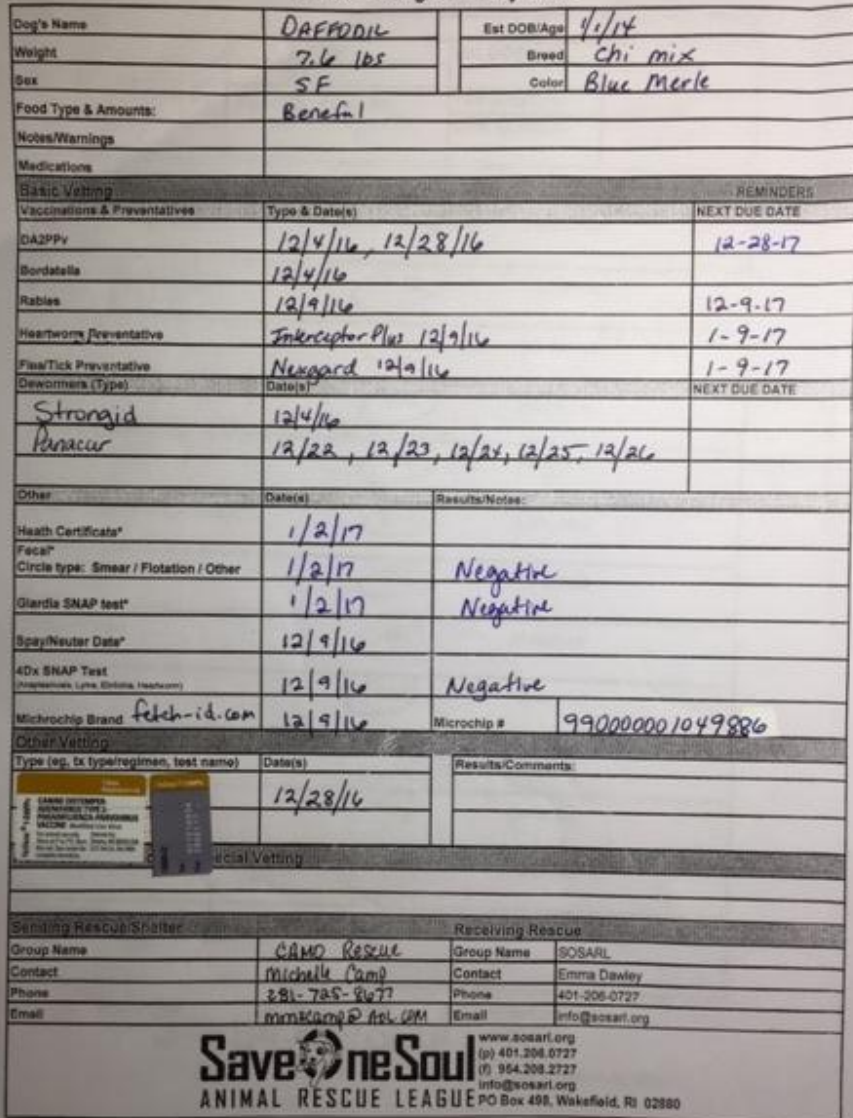 Dog's Name DAFFODIL Est DOB/Age 1/1/14
Weight 7.6 lbs Breed Chi mix
Sex SF Color Blue Merle
Food Type & Amounts: Beneful
Notes/Warnings
Medications
Basic Vetting REMINDERS
Vaccinations & Preventatives Type & Date(s) NEXT DUE DATE
DA2PPv 12/4/16, 12/28/16 12-28-17
Bordatella 12/4/16
Rabies 12/9/16 12-9-17
Heartworm Preventative Interceptor Plus 12/9/16 1-9-17
Flea/Tick Preventative Nexgard 12/9/16 1-9-17
Dewormers (Type) Date(s) NEXT DUE DATE
Strongid 12/4/16
Panacur 12/22, 12/23, 12/24, 12/25, 12/26
Other Date(s) Results/Notes:
Heath Certificate* 1/2/17
Fecal*
Circle type: Smear / Flotation / Other 1/2/17 Negative
Giardia SNAP test* 1/2/17 Negative
Spay/Neuter Date* 12/9/16
4Dx SNAP Test
12/9/16 Negative
Michrochip Brand fetch-id.com 12/9/16 Microchip # 990000001049886
Other Vetting
Type (eg, tx type/regimen, test name) Date(s) Results/Comments:
12/28/16
CANINE DISTEMPER-
ADENOVIRUS TYPE 2-
PARAINFLUENZA-PARVOVIRUS
VACCINE
ecial Vetting
Sending Rescue/Shelter Receiving Rescue
Group Name CAMO Rescue Group Name SOSARL
Contact Michelle Camp Contact Emma Dawley
Phone 281-725-8677 Phone 401-206-0727
Email Email info@sosarl.org
Save One Soul
ANIMAL RESCUE LEAGUE
www.sosarl.org
(p) 401.206.0727
(f) 954.208.2727
info@sosarl.org
PO Box 498, Wakefield, RI 02880